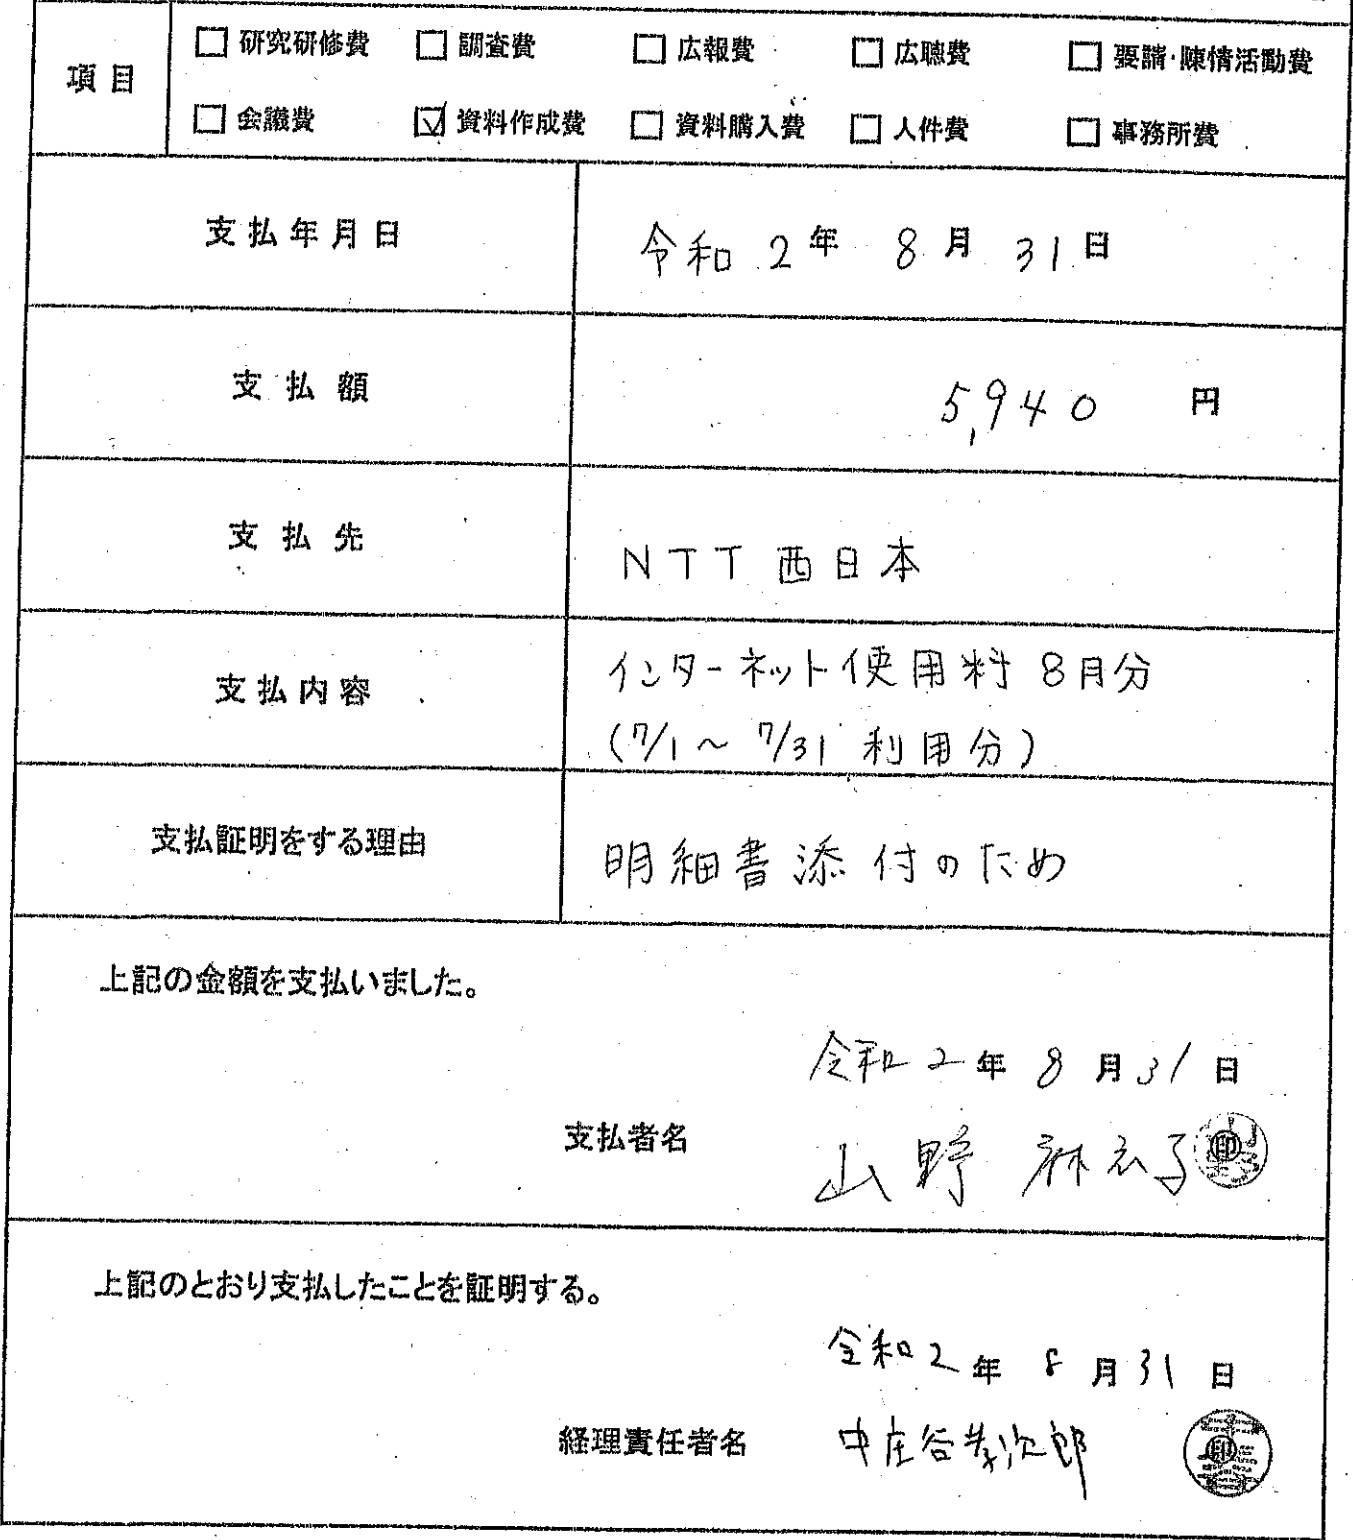 項目
□ 研究研修費 □ 調査費 □ 広報費 □ 広聴費 □ 要請・陳情活動費
□ 会議費 ☑ 資料作成費 □ 資料購入費 □ 人件費 □ 事務所費
支払年月日 令和 2 年 8 月 31 日
支払額 5,940 円
支払先 NTT西日本
支払内容 インターネット使用料 8月分
(7/1～7/31 利用分)
支払証明をする理由 明細書添付のため
上記の金額を支払いました。
令和 2 年 8 月 31 日
支払者名 山野 麻衣子 印
上記のとおり支払したことを証明する。
令和 2 年 8 月 31 日
経理責任者名 中庄谷孝次郎 印